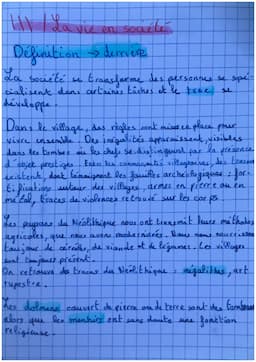 III / La vie en société
Définition → derrière
La société se transforme des personnes se spé-
cialisent dans certaines tâches et le troc se
développe.
Dans le village, des règles sont mises en place pour
vivre ensemble. Des inégalités apparaissent, visibles
dans les tombes où les chefs se distinguent par la présence
d'objet prestiges. Entre les communautés villageoises, des tensions
existent, dont témoignent les fouilles archéologiques : for-
tifications autour des villages, armes en pierre ou en
métal, traces de violences retrouvé sur les corps.
Les paysans du Néolithique nous ont transmit leurs méthodes
agricoles, que nous avons modernisées. Nous nous nourrissons
toujours de céréales, de viande et de légumes. Les villages
sont toujours présent.
On retrouve des traces du Néolithique : mégalithes, art
rupestre.
Les dolmens couvert de pierre ou de terre sont des tombeaux
alors que les menhirs ont sans doute une fonction
religieuse.